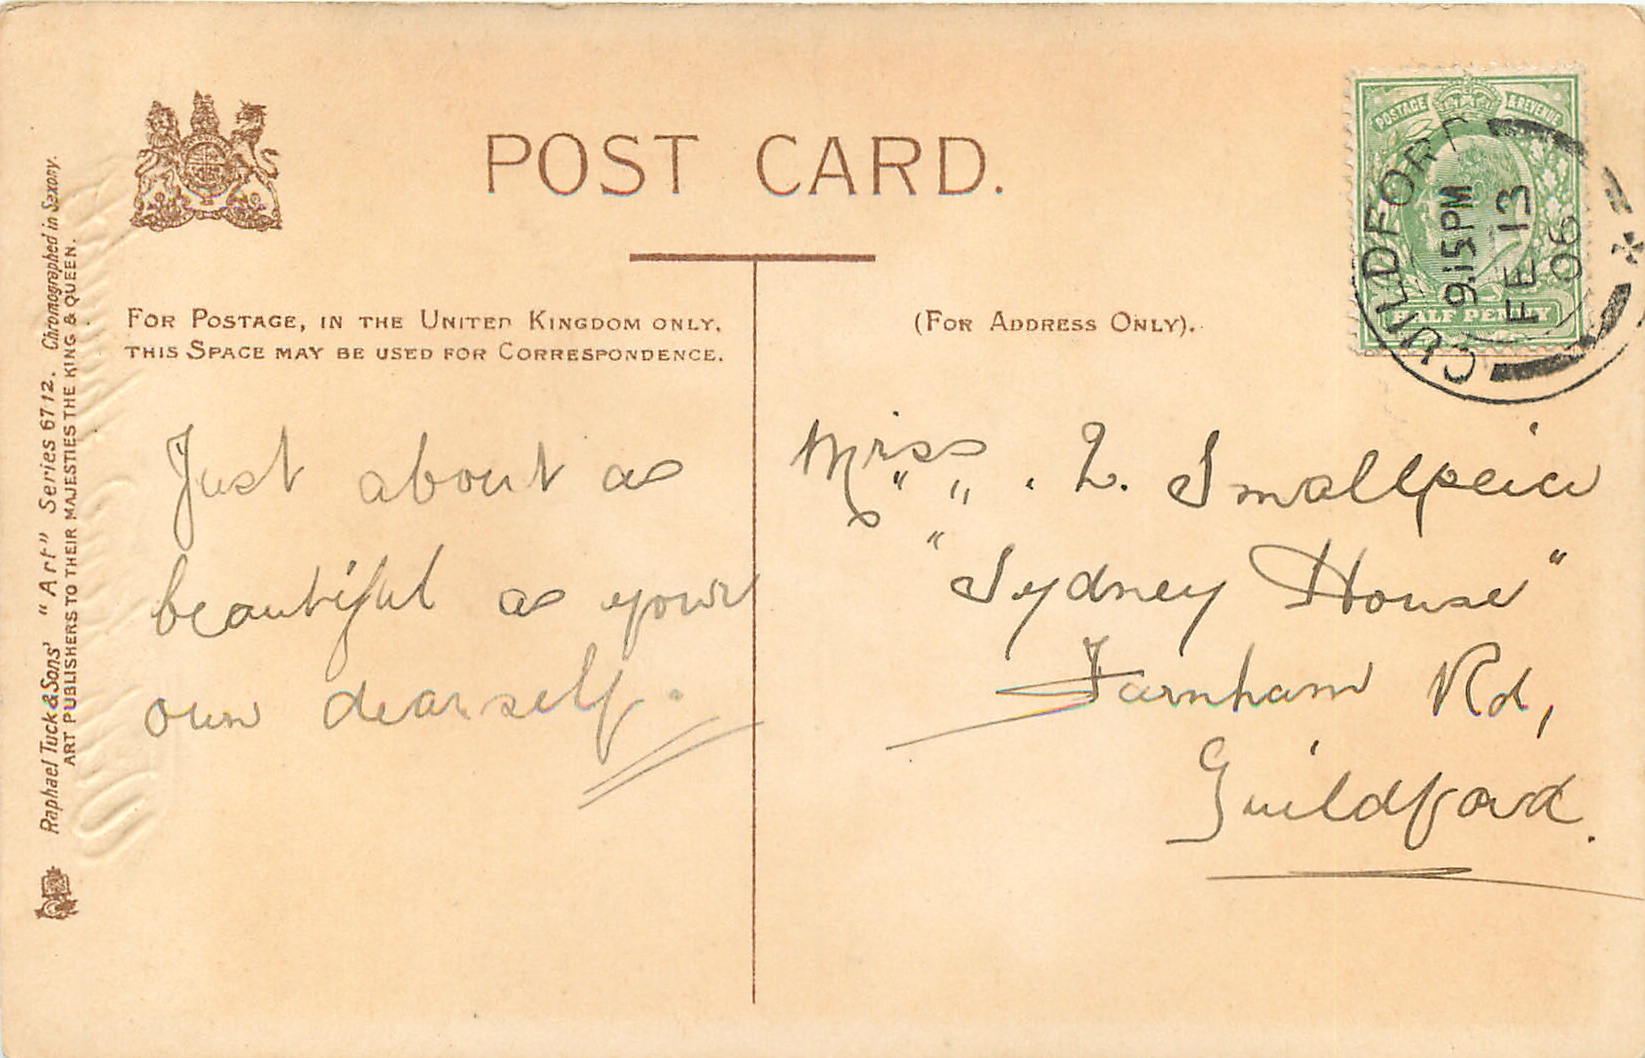 POST CARD.
FOR POSTAGE, IN THE UNITED KINGDOM ONLY,
THIS SPACE MAY BE USED FOR CORRESPONDENCE.
(FOR ADDRESS ONLY).
POSTAGE & REVENUE
HALF PENNY
GUILDFORD
9.15PM
FE 13
06
Just about as
beautiful as your
own dearself.
Miss . L. Smallpeice
"Sydney House"
Farnham Rd,
Guildford.
Raphael Tuck & Sons' "Art" Series 6712. Chromographed in Saxony.
ART PUBLISHERS TO THEIR MAJESTIES THE KING & QUEEN.